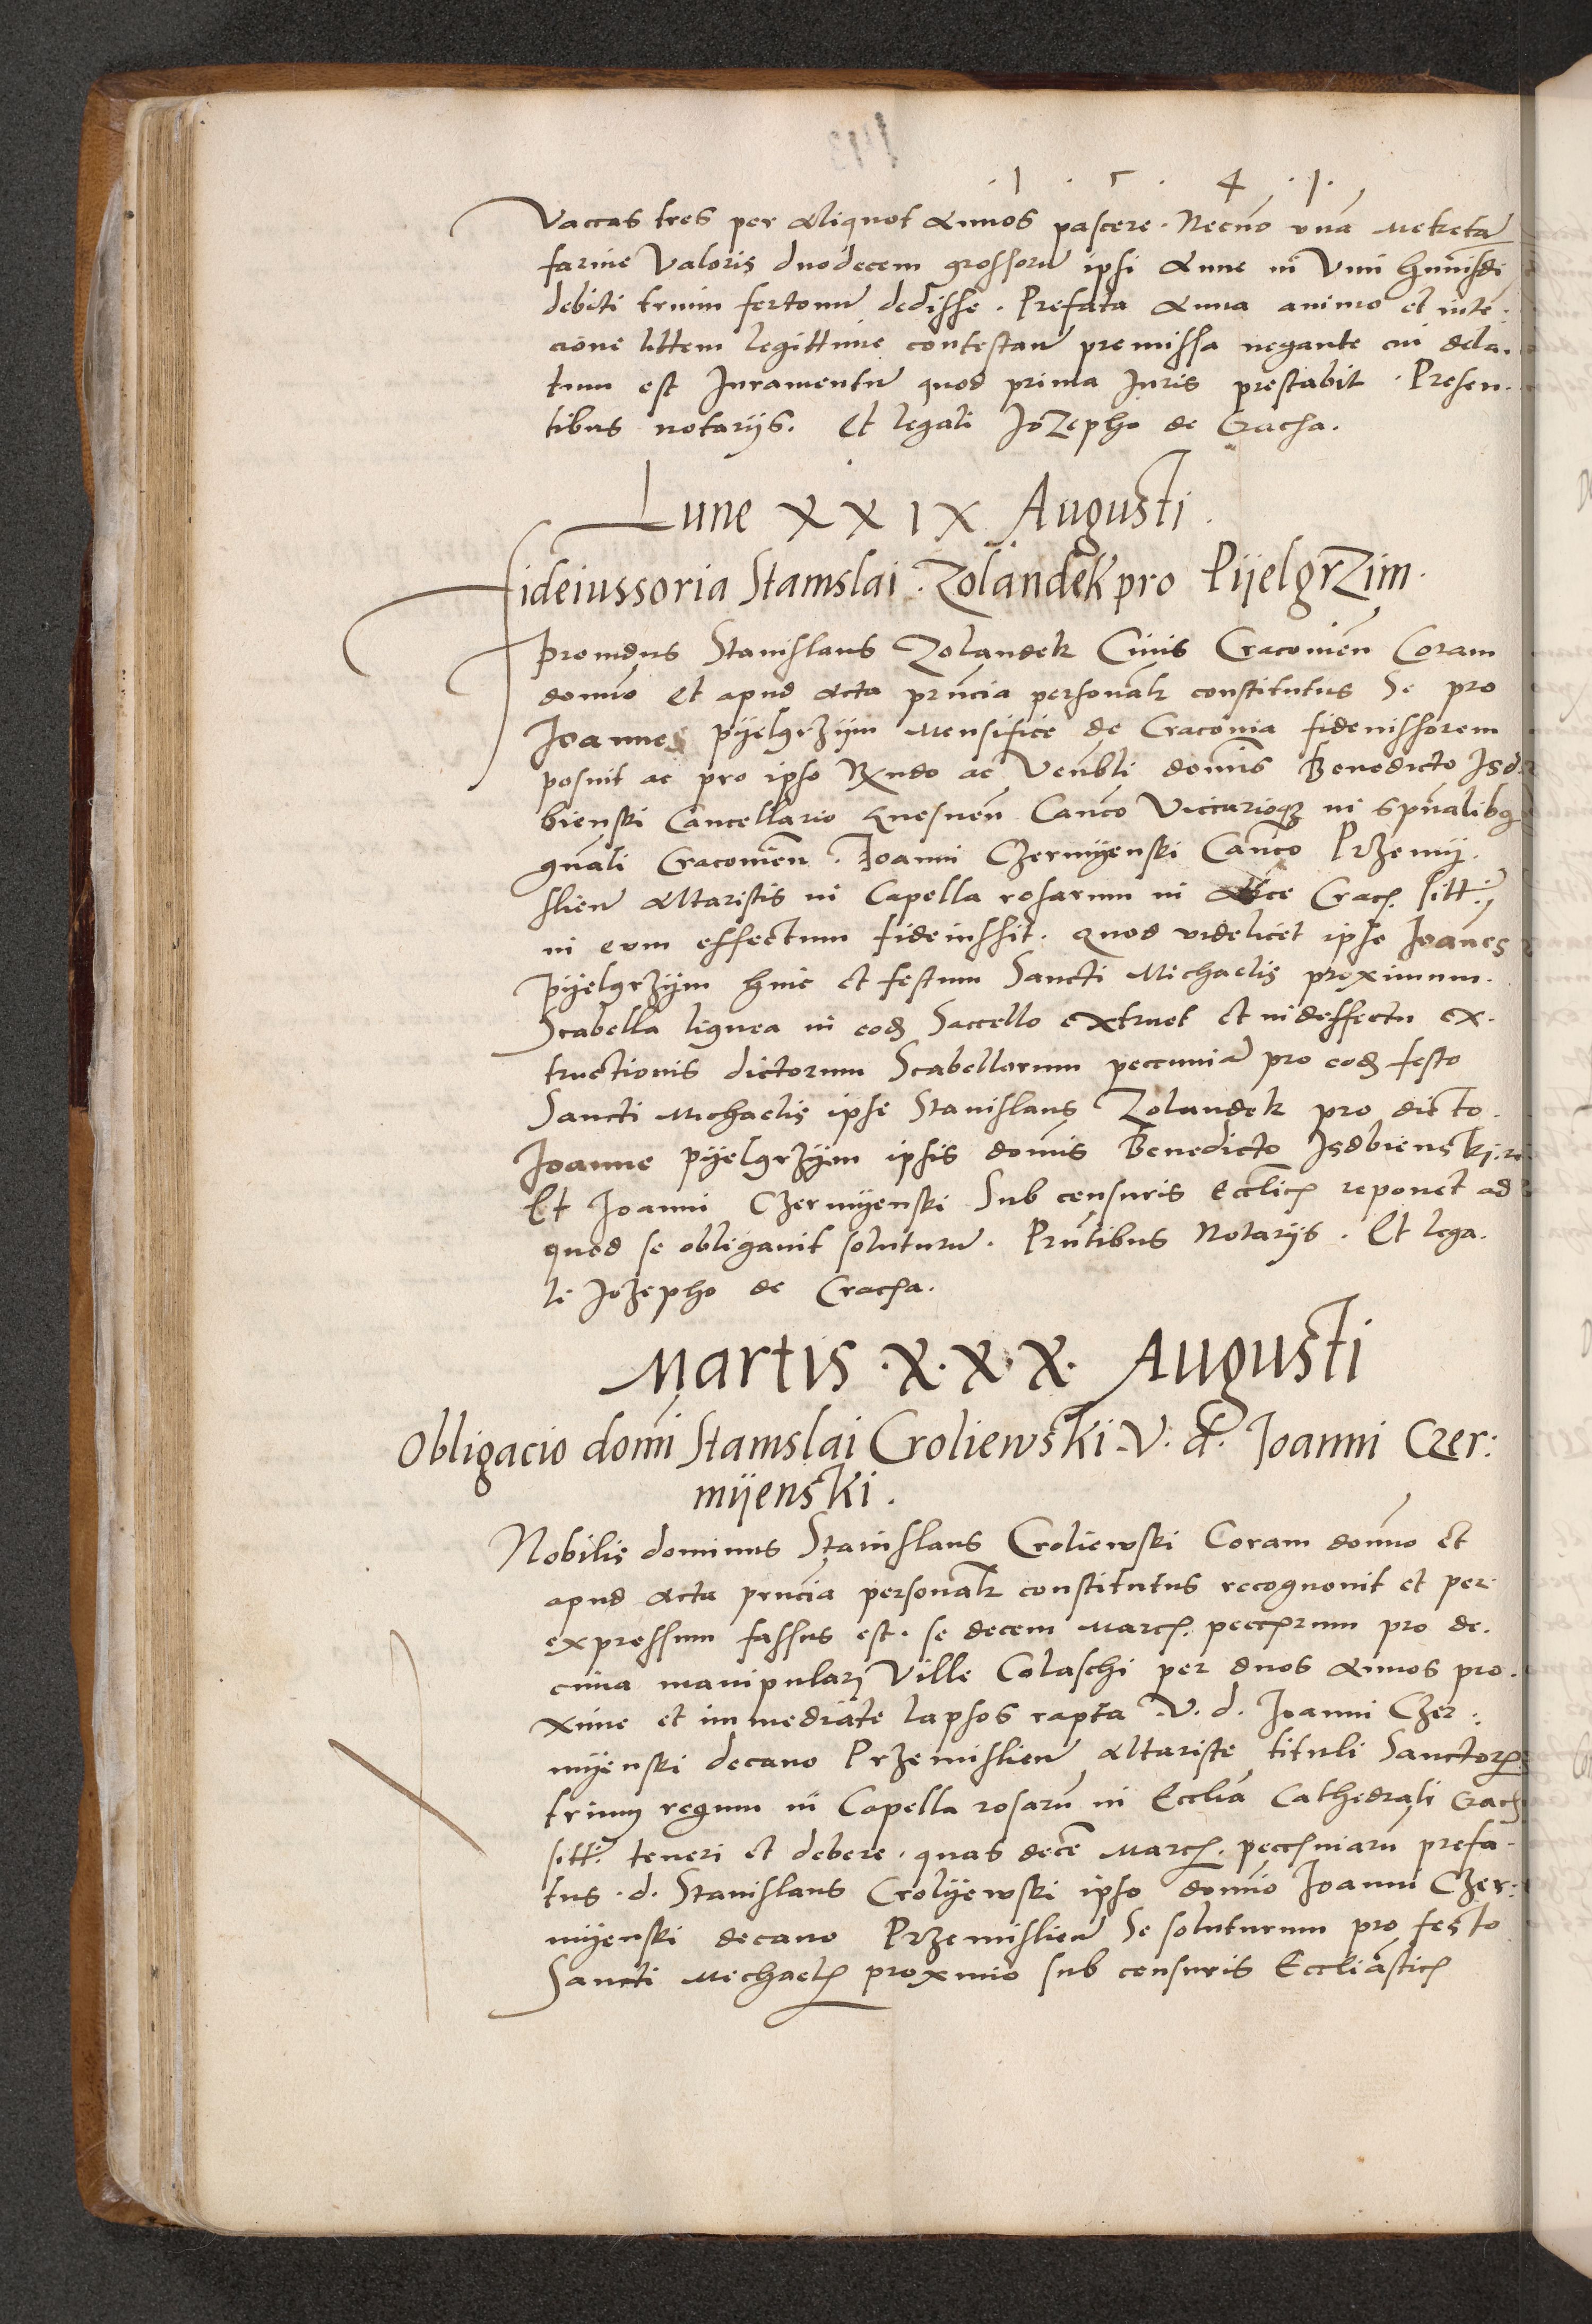 . 1 . 5 . 4 . 1 .
Vaccas tres per aliquot annos pascere. Necno una metreta
farine Valoris duodecem grossoru ipsi Anne in Vim huiusdi
debiti trium fertonu dedisse. Prefata Anna animo et inte.
cione littem legittime contestan premissa negante cui dela.
tum est Juramentu quod prima Juris prestabit. Presen.
tibus notarijs. Et legali Jozepho de Cracha.
Lune XXIX Augusti.
fideiussoria Stanislai Zolandek pro Pijelgrzim.
Prouidus Stanislaus Zolandek Ciuis Cracouien Coram
domino et apud acta pruncia personalr constitutus Se pro
Joanne pijelgrzijm mensifice de Cracouia fideiussorem
posuit ac pro ipso Rxndo ac Venbli domis Benedicto Jsd
bienski Cancellario Gnesnen Canco Viccarioqz in spualibq
gnali Cracouien. Joanni Czermijenski Canco Przemij.
slien altaristis in Capella rosarum in Crac. sitt.
in eum effectum fideiussit. Quod videlicet ipse Joanes
Pijelgrzijm hinc et festum Sancti Michaelis proximum.
Scabella lignea in eod Saccello extruet et in deffectu ex.
tructionis dictorum Scabellorum peccunia pro eod festo
Sancti Michaelis ipse Stanislaus Zolandek pro dicto.
Joanne pijelgrzijm ipsis domis Benedicto Jsdbienskj.
Et Joanni Czermijenski Sub censuris Ecclic reponet ad
quod se obligauit soluturu. Prntibus Notarijs. Et lega.
li Jozepho de Cracha.
Martis .X.X.X. Augusti
Obligacio domi Stanislai Croliewski V. d. Joanni Czer:
mijenski.
Nobilis dominus Stanislaus Croliewski Coram domno et
apud acta pruncia personalr constitutus recognouit et per
expressum fassus est. se decem marc. pecc rum pro de.
cima manipulari Ville Colaschi per duos annos pro.
xime et immediate lapsos rapta .V. d. Joanni Czer:
mijenski decano Przemislien altariste tituli Sanctor
trium regum in Capella rosaru in Ecclia Cathedrali Crac
sitt. teneri et debere. quas dece marc. pecc niaru prefa.
tus .d. Stanislaus Crolijewski ipso domio Joanni Czer:
mijenski decano Przemislien Se soluturum pro festo
Sancti Michaelis proximo sub censuris Eccliastic